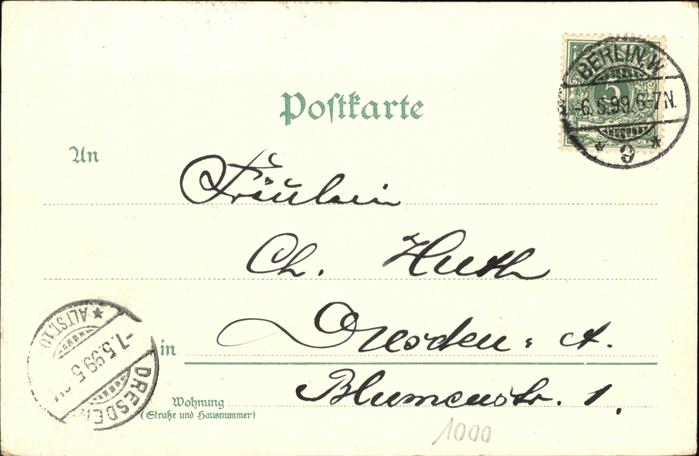 BERLIN.W.
5
-6.5.99.6-7N.
* 9 *
Postkarte
An
Fräulein
Ch. Huth
in Dresden-A.
Blumenstr. 1.
Wohnung
(Straße und Hausnummer)
DRESDEN
-7.5.99.5
* ALTST.10
1000